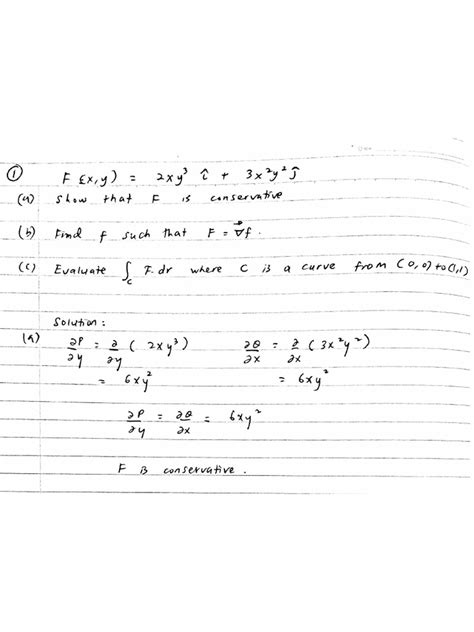 ① F (x,y) = 2xy³ î + 3x²y² ĵ
(a) Show that F is conservative
(b) Find f such that F = ∇⃗f.
(c) Evaluate ∫_C F.dr where C is a curve from (0,0) to (1,1)
Solution:
(a) ∂P/∂y = ∂/∂y (2xy³)    ∂Q/∂x = ∂/∂x (3x²y²)
= 6xy²    = 6xy²
∂P/∂y = ∂Q/∂x = 6xy²
F is conservative.